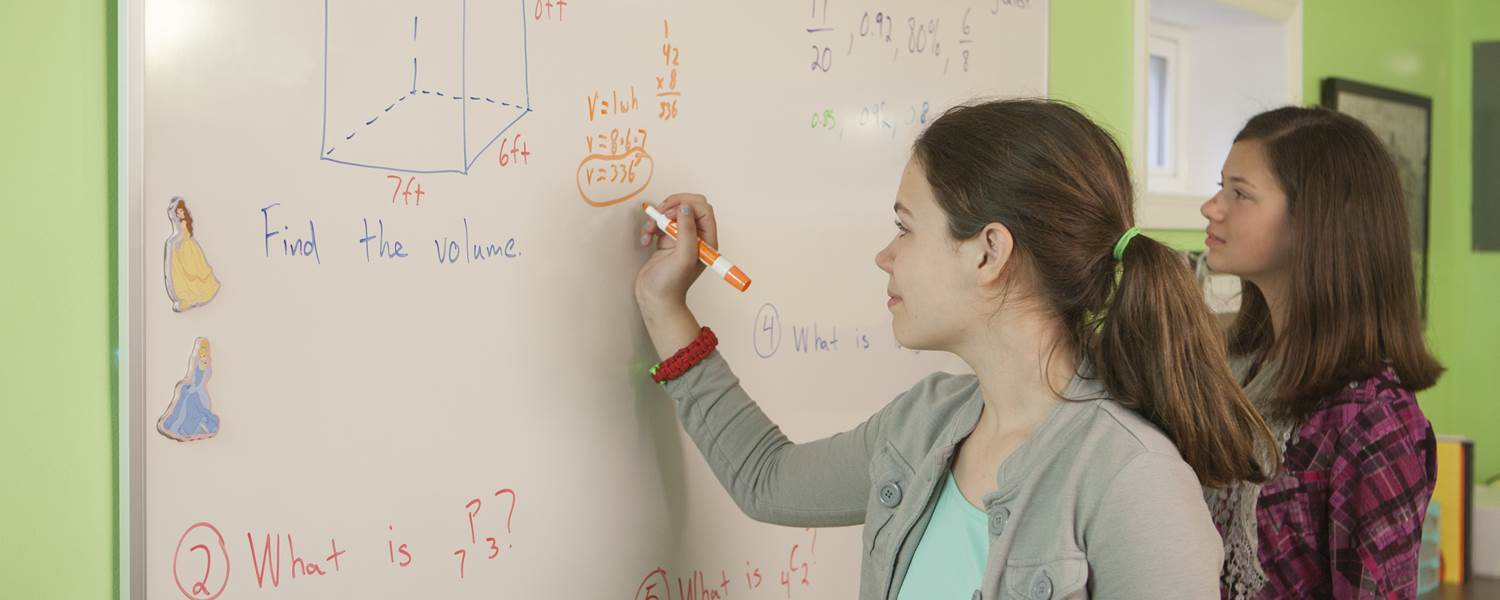 6ft
7ft
Find the volume.
1
42
x 8
336
V=lwh
V=8·6·7
V=336³
20, 0.92, 80%, 6/8
0.85, 0.92, 0.8
② What is ₇P₃?
④ What is
⑤ What is ₄C₂?